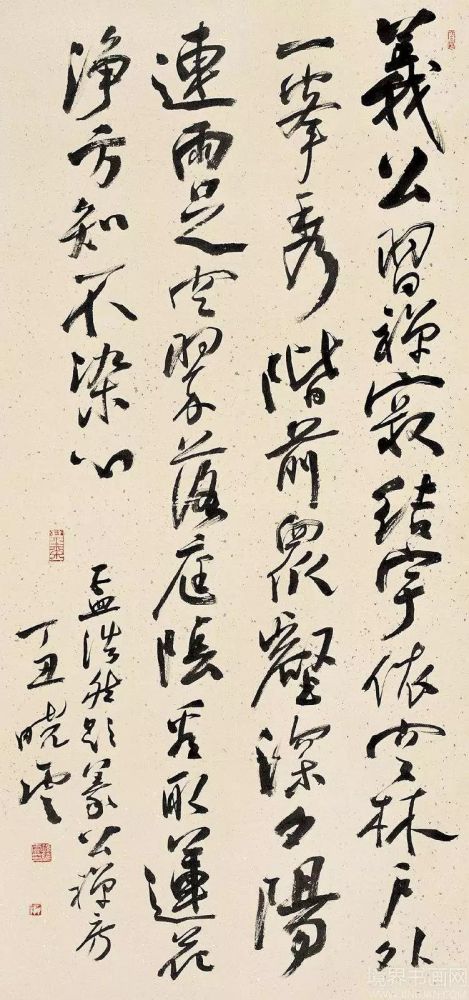 義公習禅寂結宇依空林户外
一峯秀階前衆壑深夕陽
連雨足空翠落庭陰看取蓮花
淨方知不染心
孟浩然題義公禅房
丁丑曉雲
境界书画网